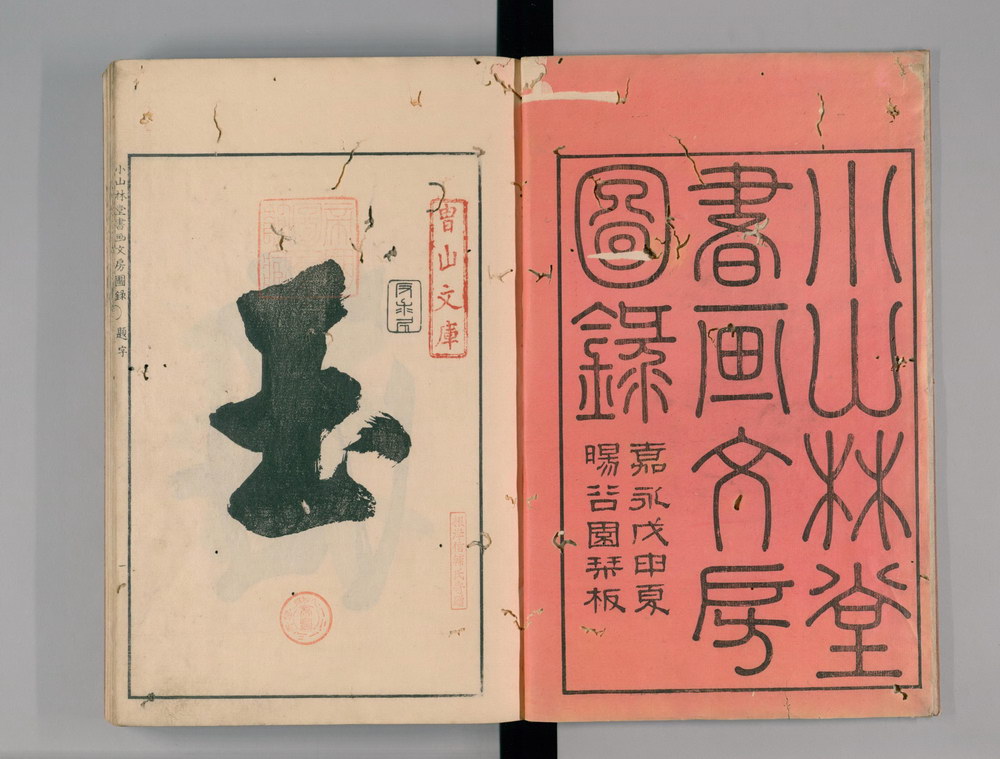 小山林堂
書画文房
圖錄
嘉永戊申夏
暘谷園栞板
曾山文庫
玉
小山林堂書画文房圖錄 題字